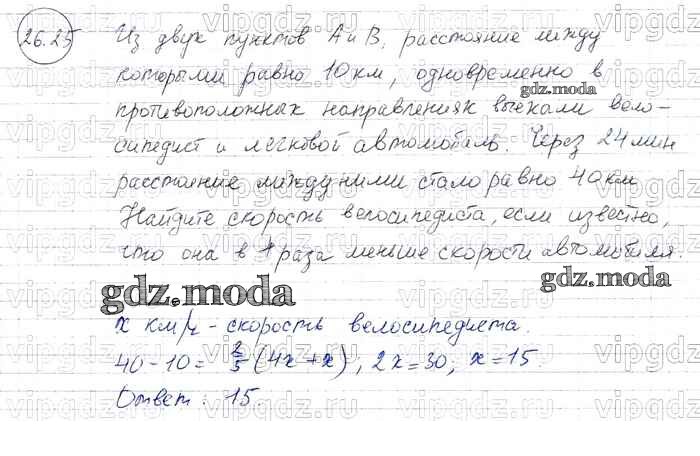 26.25
Из двух пунктов А и В, расстояние между
которыми равно 10 км, одновременно в
gdz.moda
противоположных направлениях выехали вело-
сипедист и легковой автомобиль. Через 24 мин
расстояние между ними стало равно 40 км
Найдите скорость велосипедиста, если известно,
что она в 4 раза меньше скорости автомобиля.
gdz.moda
gdz.moda
x км/ч - скорость велосипедиста.
40-10= 2/5 (4x+x), 2x=30; x=15.
Ответ: 15.
vipgdz.ru